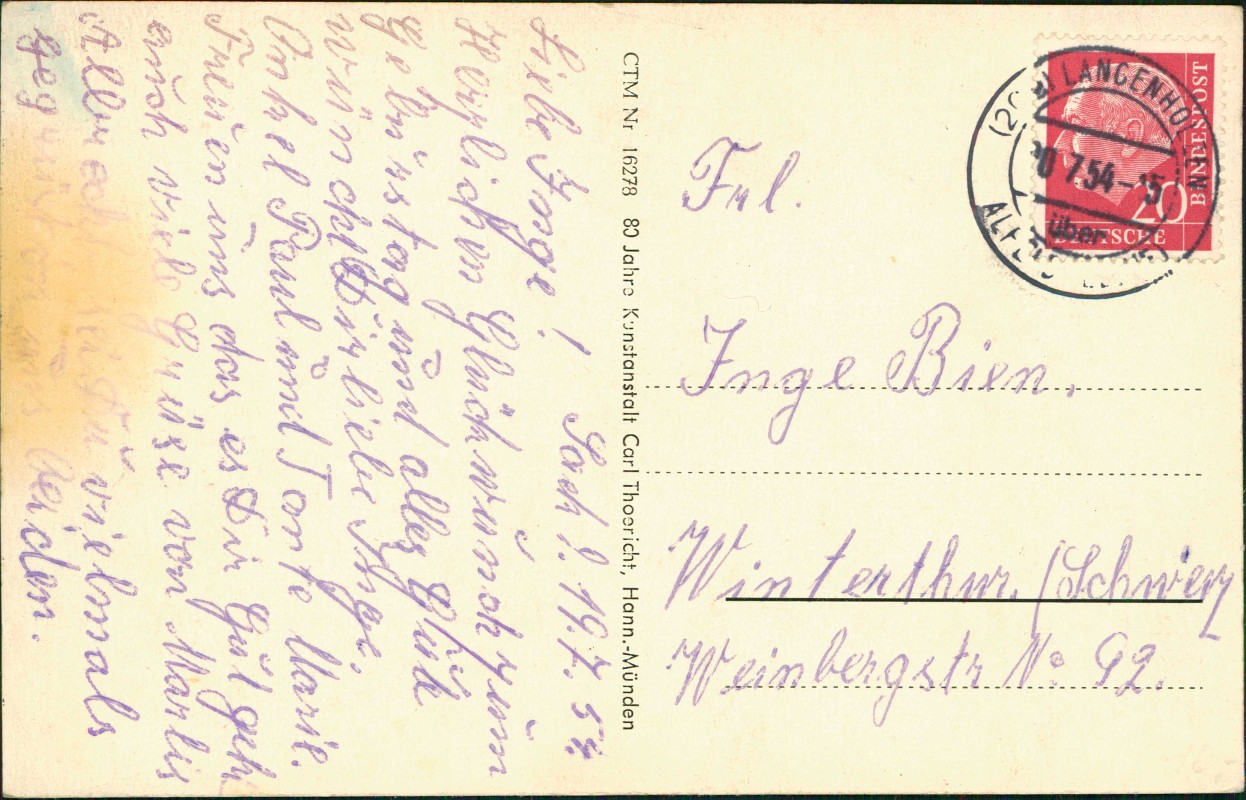 Sack, d. 19.7.54
Liebe Inge!
Herzlichen Glückwunsch zum
Gebürstag und alles Glük
wünscht Dir liebe Inge.
Onkel Paul und Tante Marie.
Freuen uns das es Dir gut geht
auch viele Grüße von Marlis
Allen
vielmals
gegrüßt von uns beiden.
CTM Nr 16278 80 Jahre Kunstanstalt Carl Thoericht, Hann.-Münden
Frl.
Inge Bien.
Winterthur. (Schweiz
Weinbergstr No 92.
LANGENHOLZEN
7.54-15
über
ALFELD
20
DEUTSCHE
BUNDESPOST